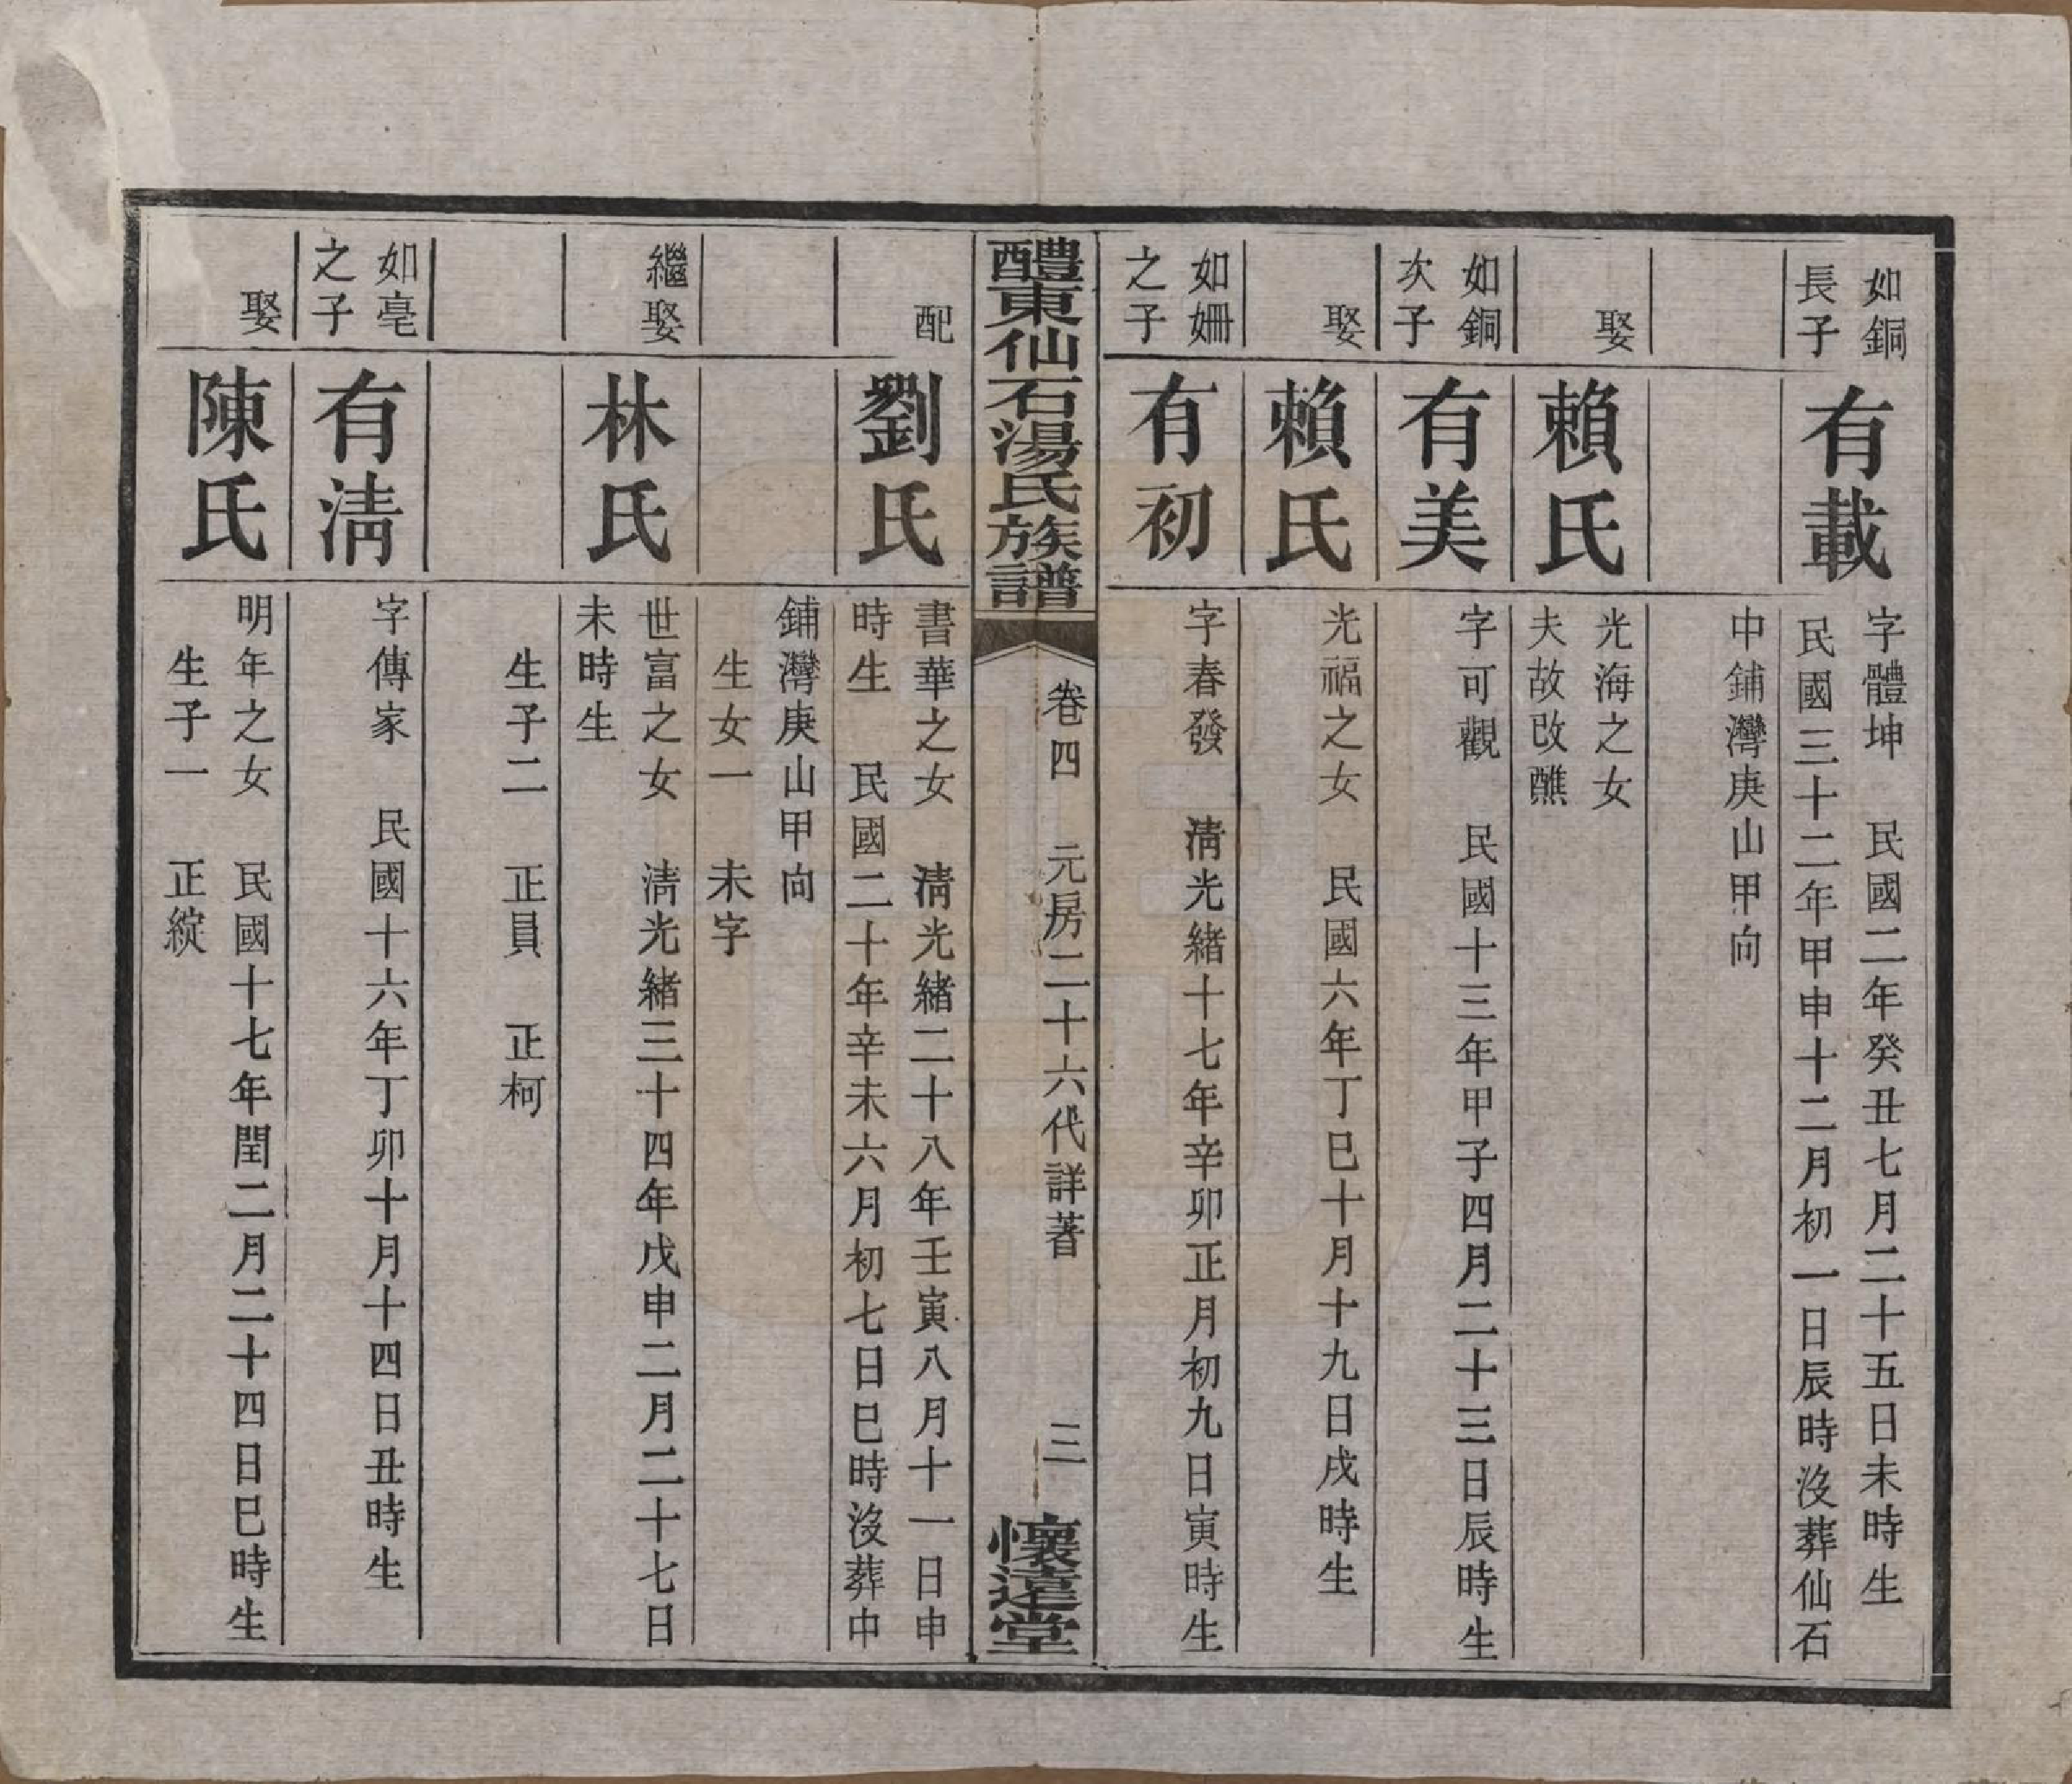 如銅
長子
有載
字體坤 民國二年癸丑七月二十五日未時生
民國三十二年甲申十二月初一日辰時沒葬仙石
中鋪灣庚山甲向
娶
賴氏
光海之女
夫故改醮
如銅
次子
有美
字可觀 民國十三年甲子四月二十三日辰時生
娶
賴氏
光福之女 民國六年丁巳十月十九日戌時生
如姍
之子
有初
字春發 淸光緒十七年辛卯正月初九日寅時生
醴東仙石湯氏族譜
卷四 元房二十六代詳著 三
懷遠堂
配
劉氏
書華之女 淸光緒二十八年壬寅八月十一日申
時生 民國二十年辛未六月初七日巳時沒葬中
鋪灣庚山甲向
生女一 未字
繼娶
林氏
世富之女 淸光緒三十四年戊申二月二十七日
未時生
生子二 正員 正柯
如亳
之子
有淸
字傳家 民國十六年丁卯十月十四日丑時生
娶
陳氏
明年之女 民國十七年閏二月二十四日巳時生
生子一 正綻